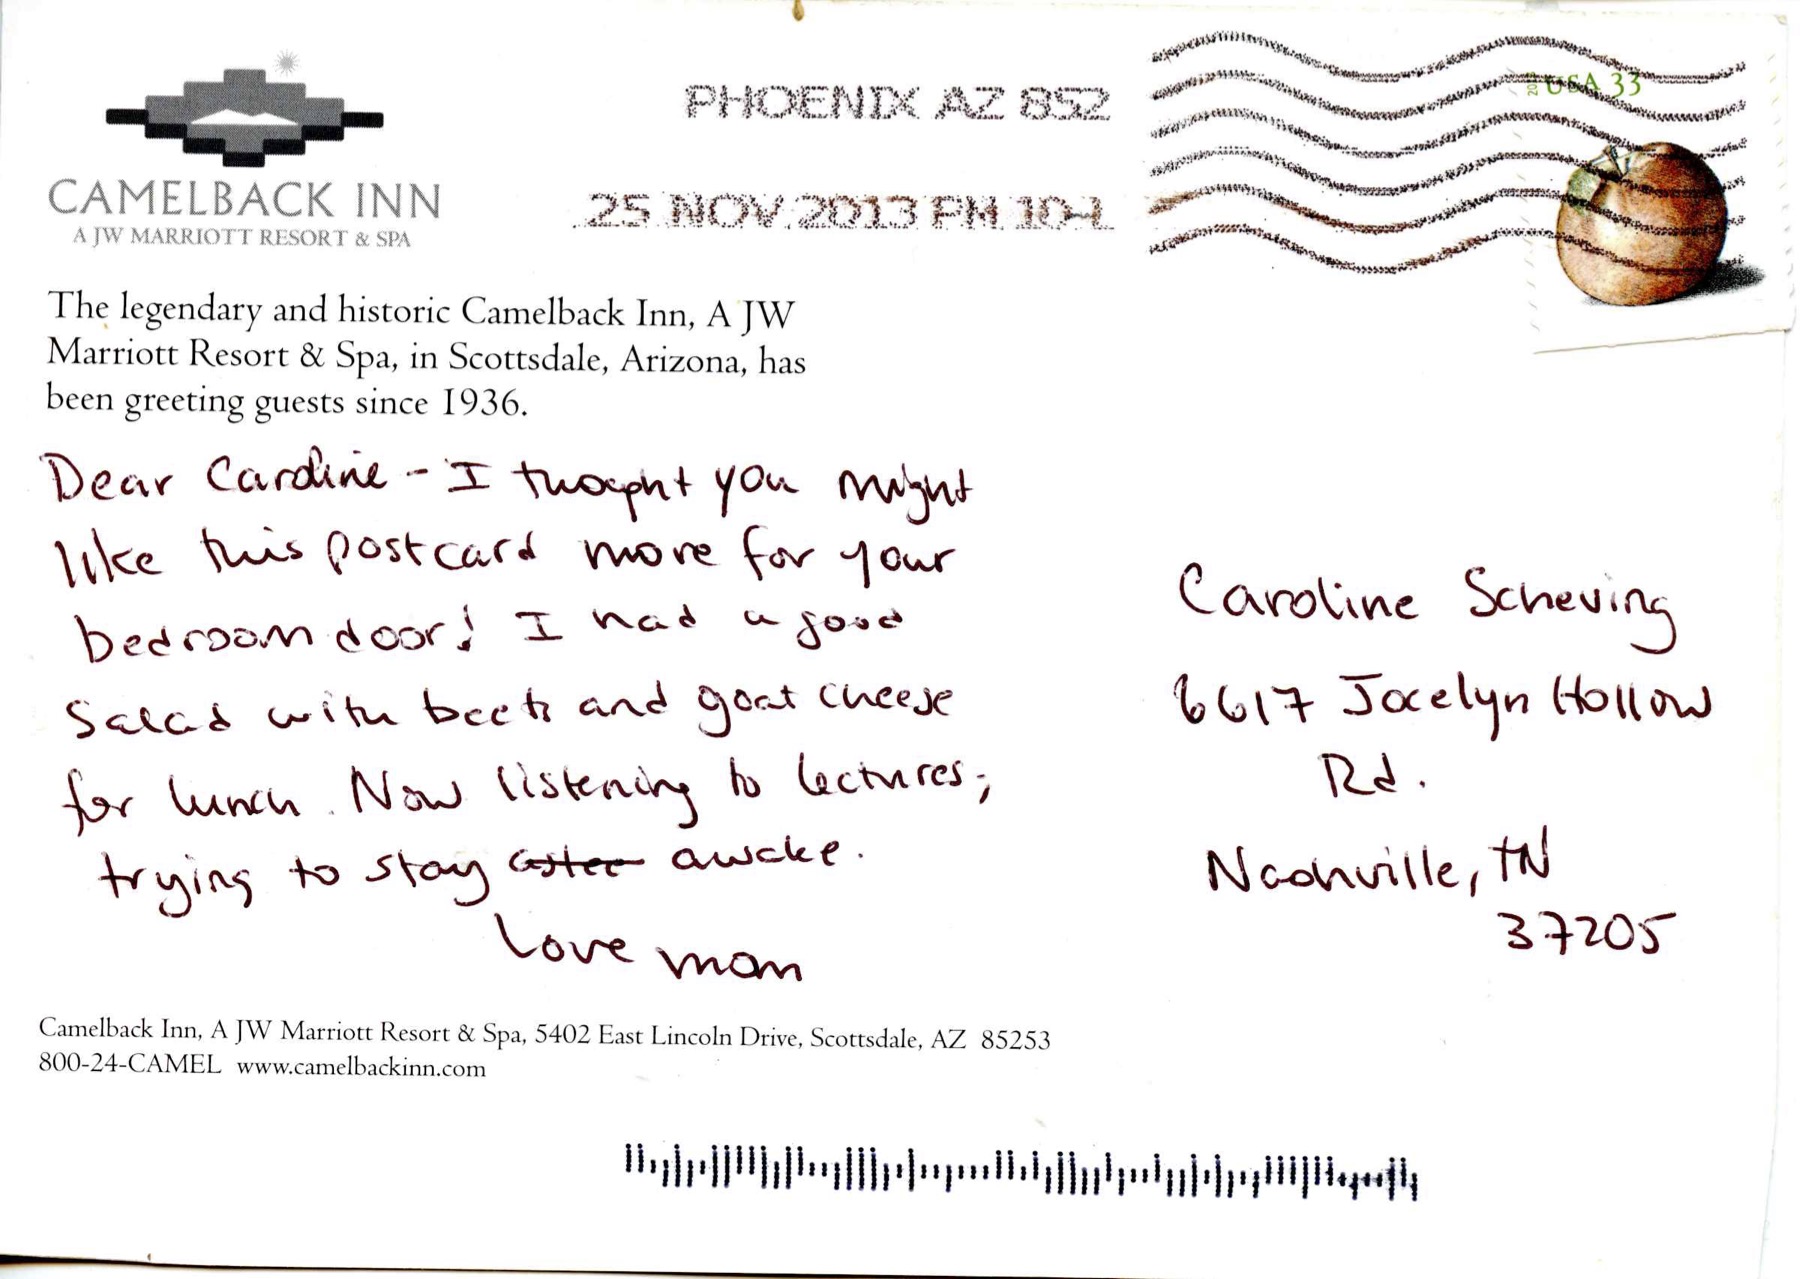 CAMELBACK INN
A JW MARRIOTT RESORT & SPA
PHOENIX AZ 852
25 NOV 2013 PM 10 L
USA 33
The legendary and historic Camelback Inn, A JW
Marriott Resort & Spa, in Scottsdale, Arizona, has
been greeting guests since 1936.
Dear Caroline - I thought you might
like this postcard more for your
bedroom door! I had a good
salad with beets and goat cheese
for lunch. Now listening to lectures,
trying to stay awake.
Love mom
Caroline Scheving
6617 Jocelyn Hollow
Rd.
Nashville, TN
37205
Camelback Inn, A JW Marriott Resort & Spa, 5402 East Lincoln Drive, Scottsdale, AZ 85253
800-24-CAMEL www.camelbackinn.com